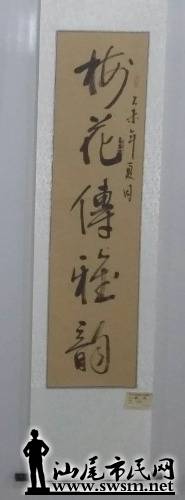 梅花傳雅韻
乙未年夏月
汕尾市民网
www.swsm.net